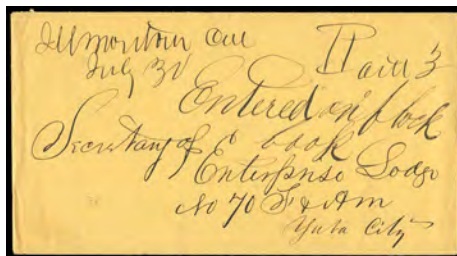 Illmontown Cal
July 31
Paid 3
Entered in block
book
Secretary of
Enterprise Lodge
No 70 F & Am
Yuba City